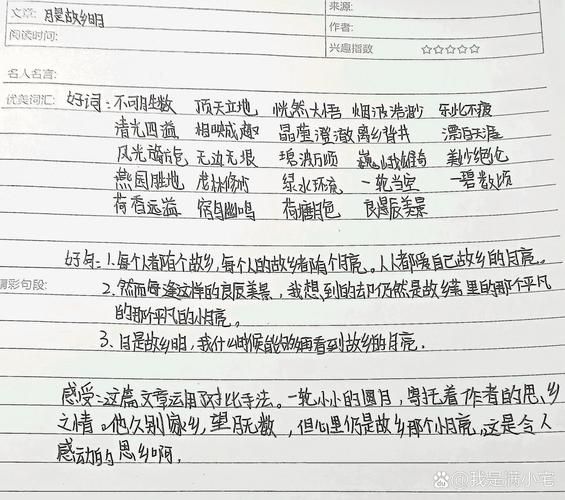 文章: 月是故乡明
来源:
阅读时间:
作者:
兴趣指数 ☆☆☆☆☆
名人名言:
优美词汇: 好词: 不可胜数 顶天立地 恍然大悟 烟波浩渺 乐此不疲
清光四溢 相映成趣 晶莹澄澈 离乡背井 漂泊天涯
风光旖旎 无边无垠 碧波万顷 巍峨雄奇 美妙绝伦
燕园胜地 茂林修竹 绿水环流 一轮当空 一碧数顷
荷香远溢 宿鸟幽鸣 荷塘月色 良辰美景
好句: 1. 每个人都有个故乡, 每个人的故乡都有个月亮。人人都爱自己故乡的月亮。
精彩句段: 2. 然而每逢这样的良辰美景, 我想到的却仍然是故乡苇坑里的那个平凡
的那个平凡的小月亮。
3. 月是故乡明, 我什么时候能够再看到故乡的月亮.
感受: 这篇文章运用对比手法。一轮小小的圆月, 寄托着作者的思乡
之情。他久别家乡, 望月无数, 但心里仍是故乡那个小月亮, 这是令人
感动的思乡啊.
Bai百度 @我是满小宅